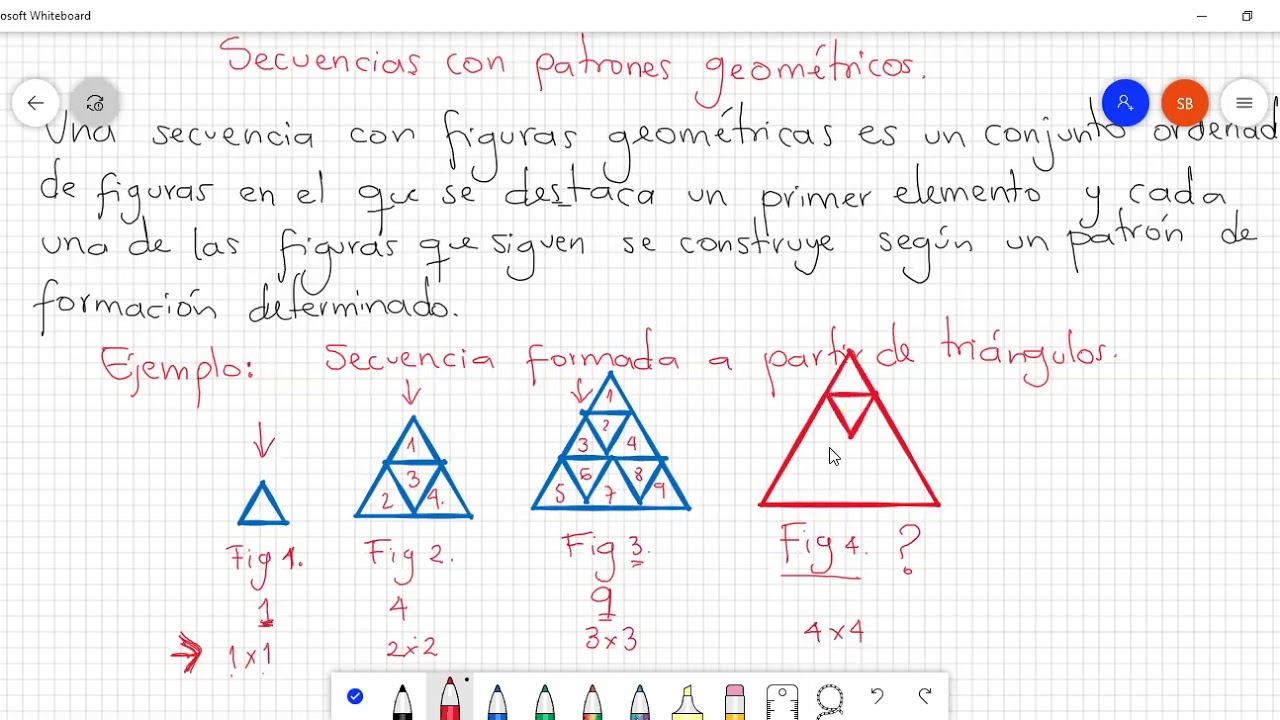 osoft Whiteboard
Secuencias con patrones geométricos.
SB
Una secuencia con figuras geométricas es un conjunto ordenad
de figuras en el que se destaca un primer elemento y cada
una de las figuras que siguen se construye según un patrón de
formación determinado.
Ejemplo: Secuencia formada a partir de triángulos.
1
1
2
3
4
1
2
3
4.
5
6
7
8
9
Fig 1. Fig 2. Fig 3. Fig 4. ?
1 4 9
1x1 2x2 3x3 4x4